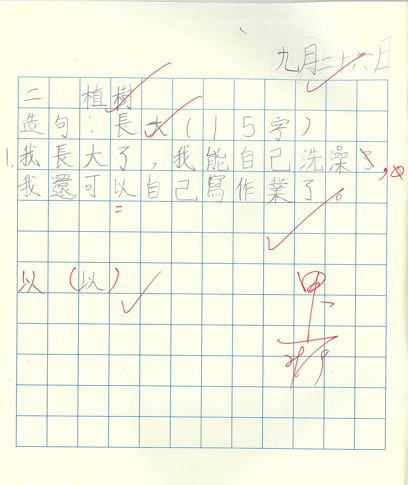 九月二十六日
二 植樹
造句：長大(15字)
1.我長大了，我能自己洗澡了，
我還可以自己寫作業了。
以(以)
甲